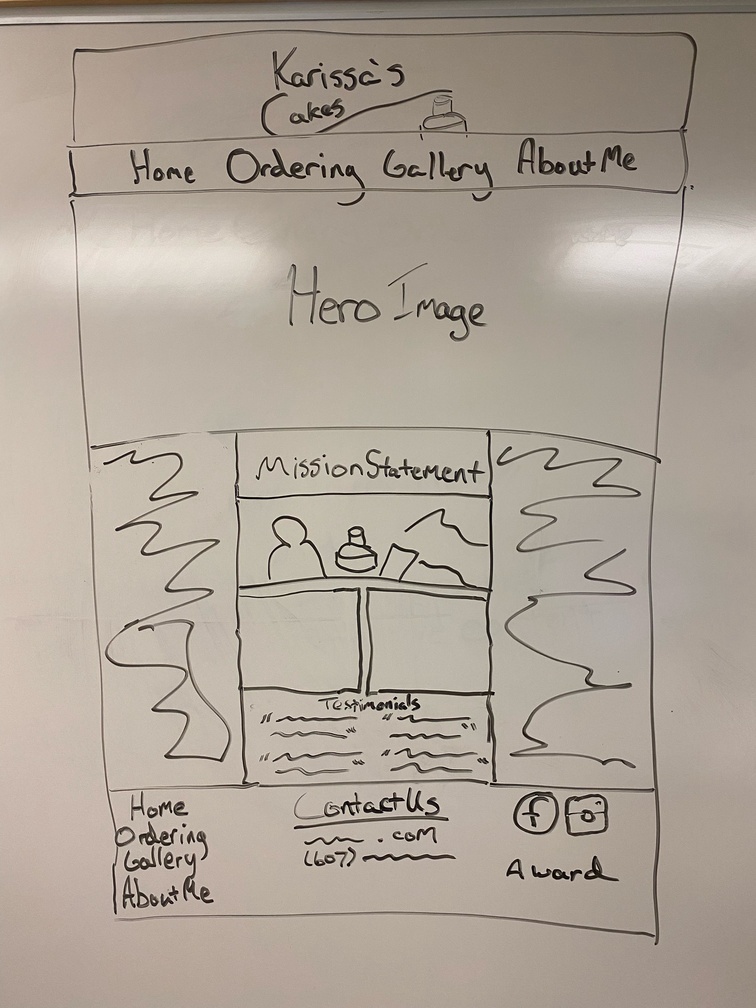 Karissa's
Cakes
Home Ordering Gallery About Me
Hero Image
Mission Statement
Testimonials
Home
Ordering
Gallery
About Me
Contact Us
.com
(607)
f
Award